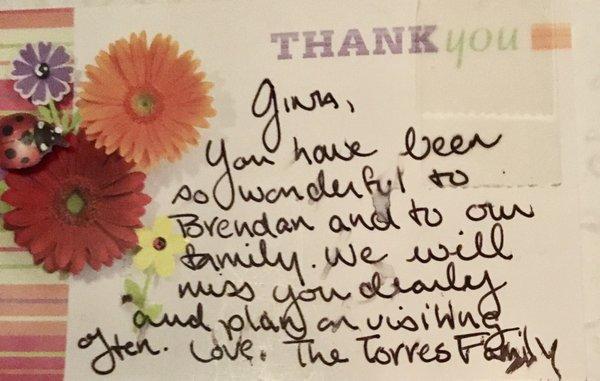 THANK you
Gina,
You have been
so wonderful to
Brendan and to our
family. We will
miss you dearly
and plan on visiting
often. Love, The Torres Family